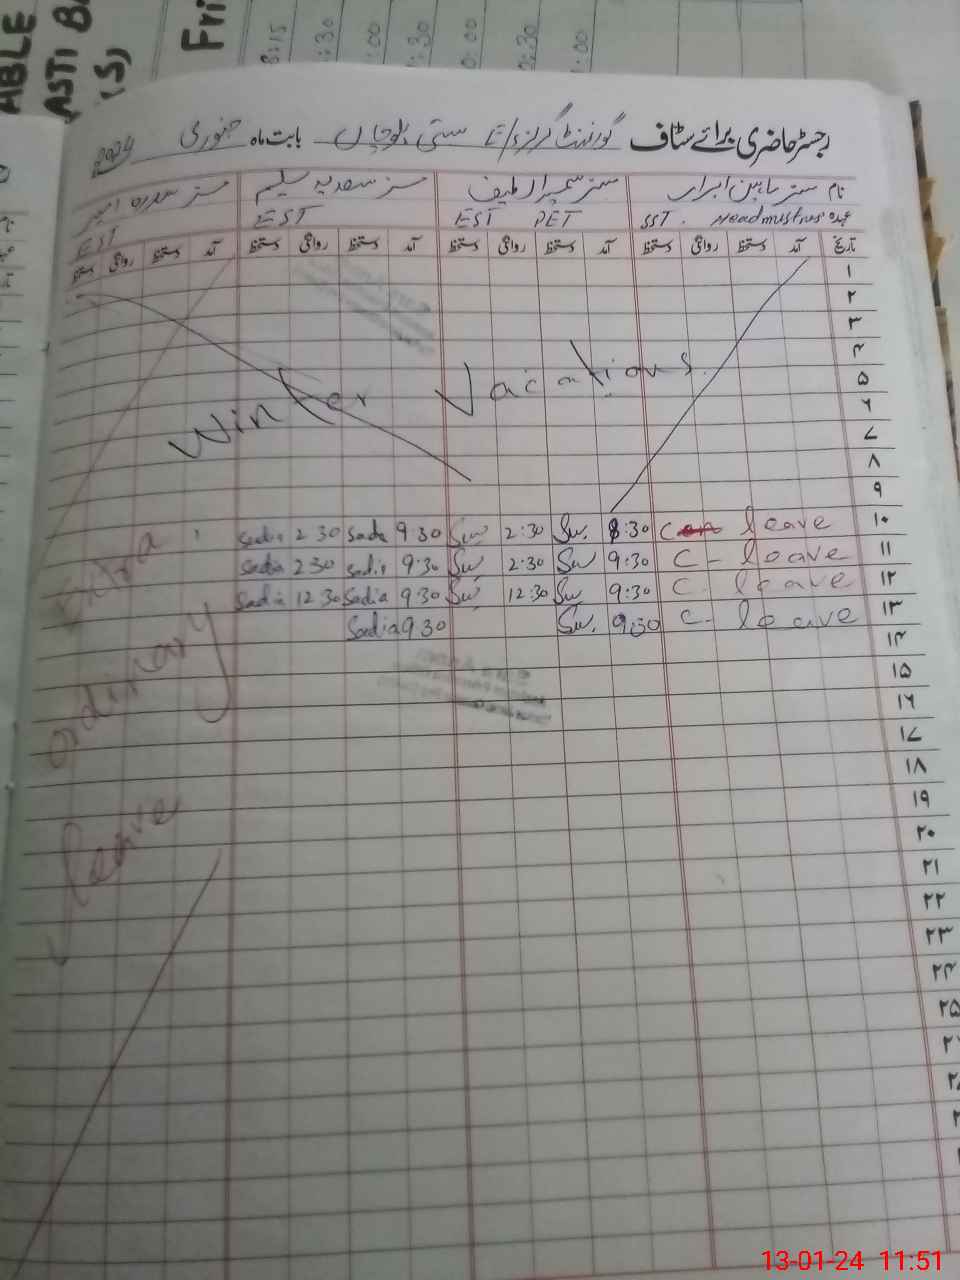 ABLE
ASTI BA
(S)
Fri
8:15
:30
:00
1:30
0:00
2:30
1:00
رجسٹر حاضری برائے سٹاف گورنمنٹ گرلز بستی بلوچاں بابت ماہ جنوری 2024
نام مسز ماہین ابرار مسز سمیرا لطیف مسز سعدیہ سلیم مسز سدرہ
عہدہ Headmistress SST. EST PET EST EST
تاریخ آمد دستخط روانگی دستخط آمد دستخط روانگی دستخط آمد دستخط روانگی دستخط آمد دستخط روانگی دستخط
۱
۲
۳
۴
۵
۶
۷
۸
۹
Winter Vacations.
۱۰ leave 8:30 Sw. 2:30 Sw 9:30 Sadia 2 30 Sadia
۱۱ C - leave 9:30 Sw 2:30 Sw 9:30 Sadia 2 30 Sadia
۱۲ C - leave 9:30 Sw 12:30 Sw 9:30 Sadia 12:30 Sadia
۱۳ C - leave 9:30 Sw. 9 30 Sadia
۱۴
۱۵
۱۶
۱۷
۱۸
۱۹
۲۰
۲۱
۲۲
۲۳
۲۴
۲۵
Extra ordinary leave
13-01-24 11:51